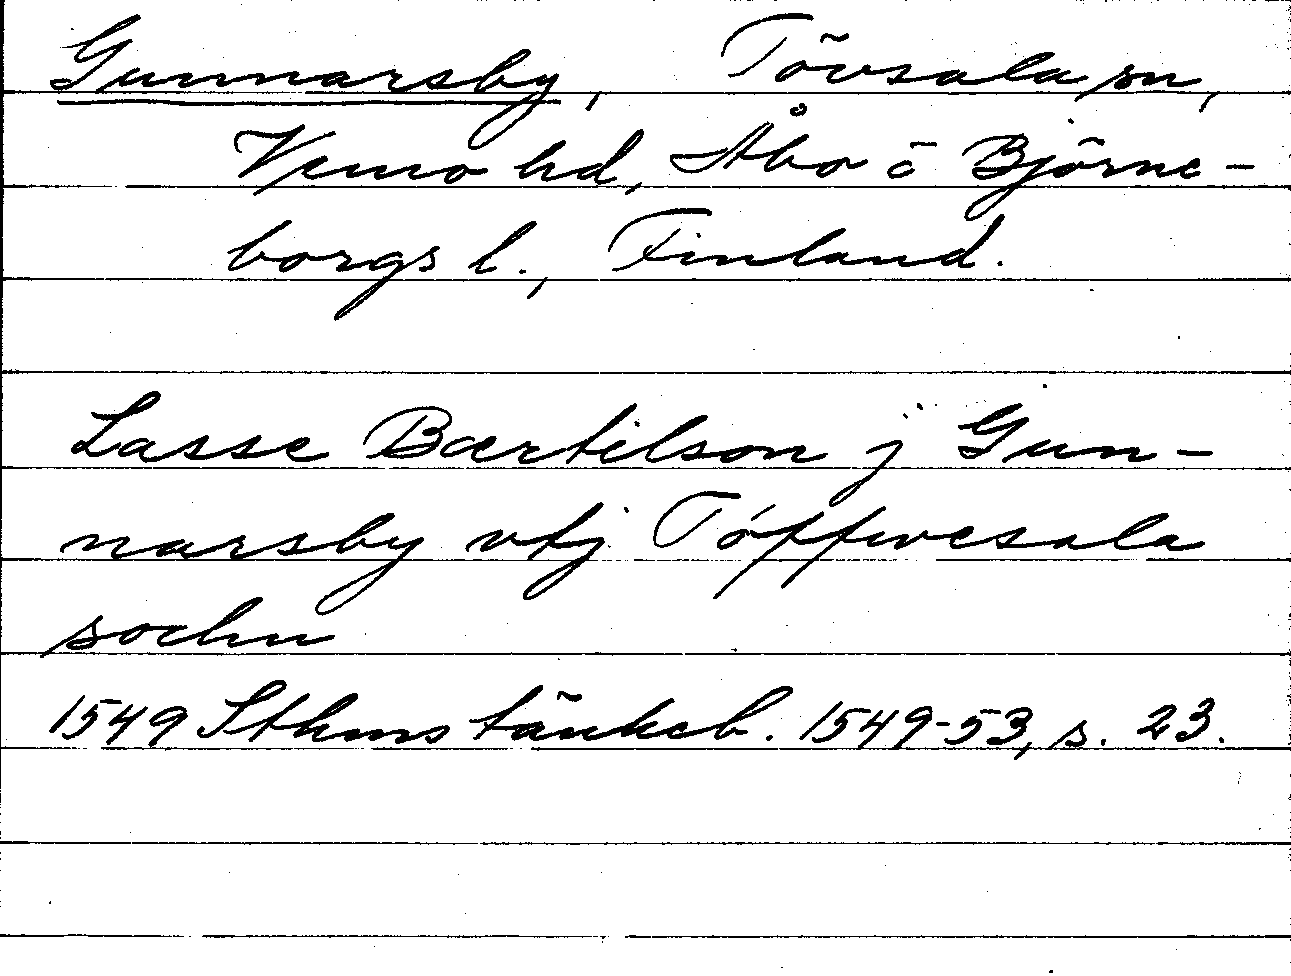 Gunnarsby, Tövsala sn,
Vemo hd, Åbo o Björne-
borgs l., Finland.
Lasse Bærtilson j Gun-
narsby vtj Töffwesala
sochn
1549 Sthms tänkeb. 1549-53, s. 23.